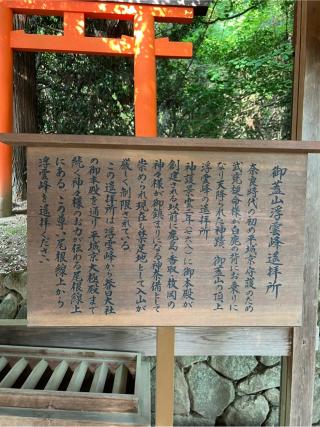 御蓋山浮雲峰遥拝所
奈良時代の初め平城京守護のため
武甕槌命様が白鹿の背にお乗りに
なり天降られた神蹟、御蓋山の頂上
浮雲峰の遥拝所。
神護景雲二年(七六八)に御本殿が
創建される以前に鹿島・香取・枚岡の
神々様が御鎮まりになる神奈備として
崇められ現在も禁足地として入山が
厳しく制限されている。
この遥拝所は浮雲峰から春日大社
の御本殿を通り平城京大極殿まで
続く神々様のお力が伝わる尾根線上
にある。この尊い尾根線上から
浮雲峰を遥拝ください。